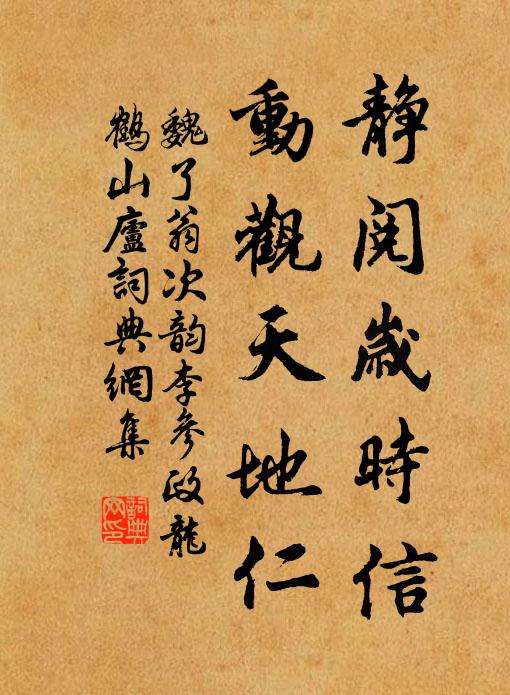 静閱歲時信
動觀天地仁
魏了翁次韵李參政龍
鶴山廬詞典網集
詞典網印